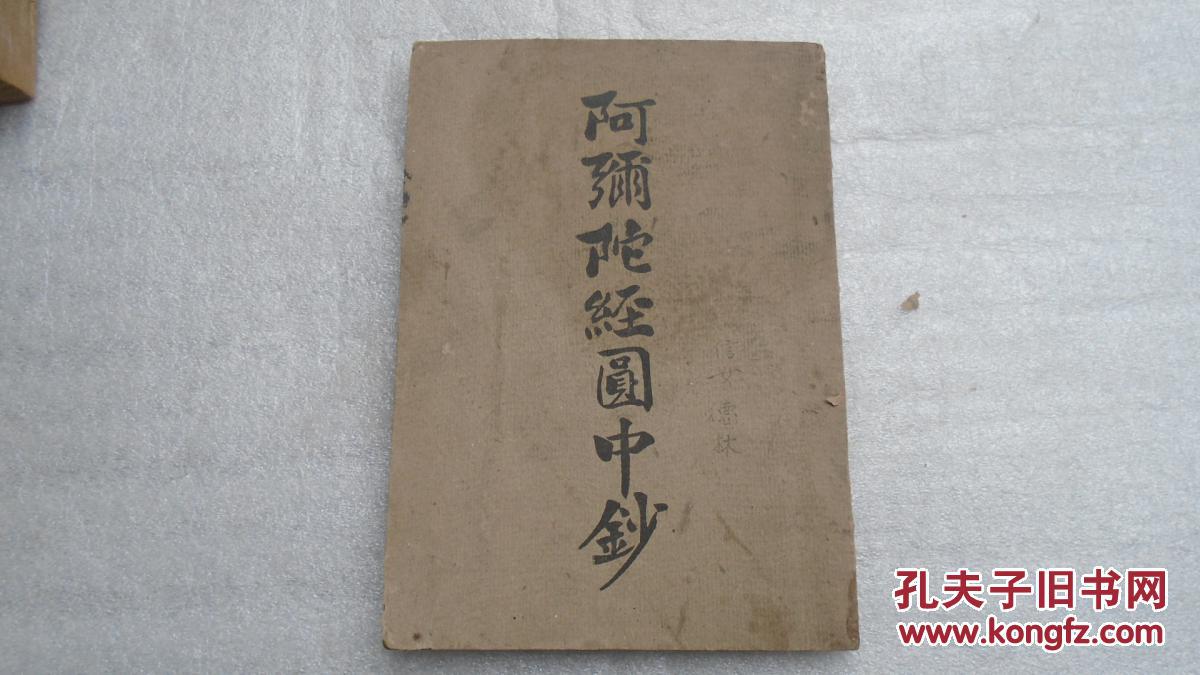 阿彌陀經圓中鈔
信女 德林
孔夫子旧书网
www.kongfz.com